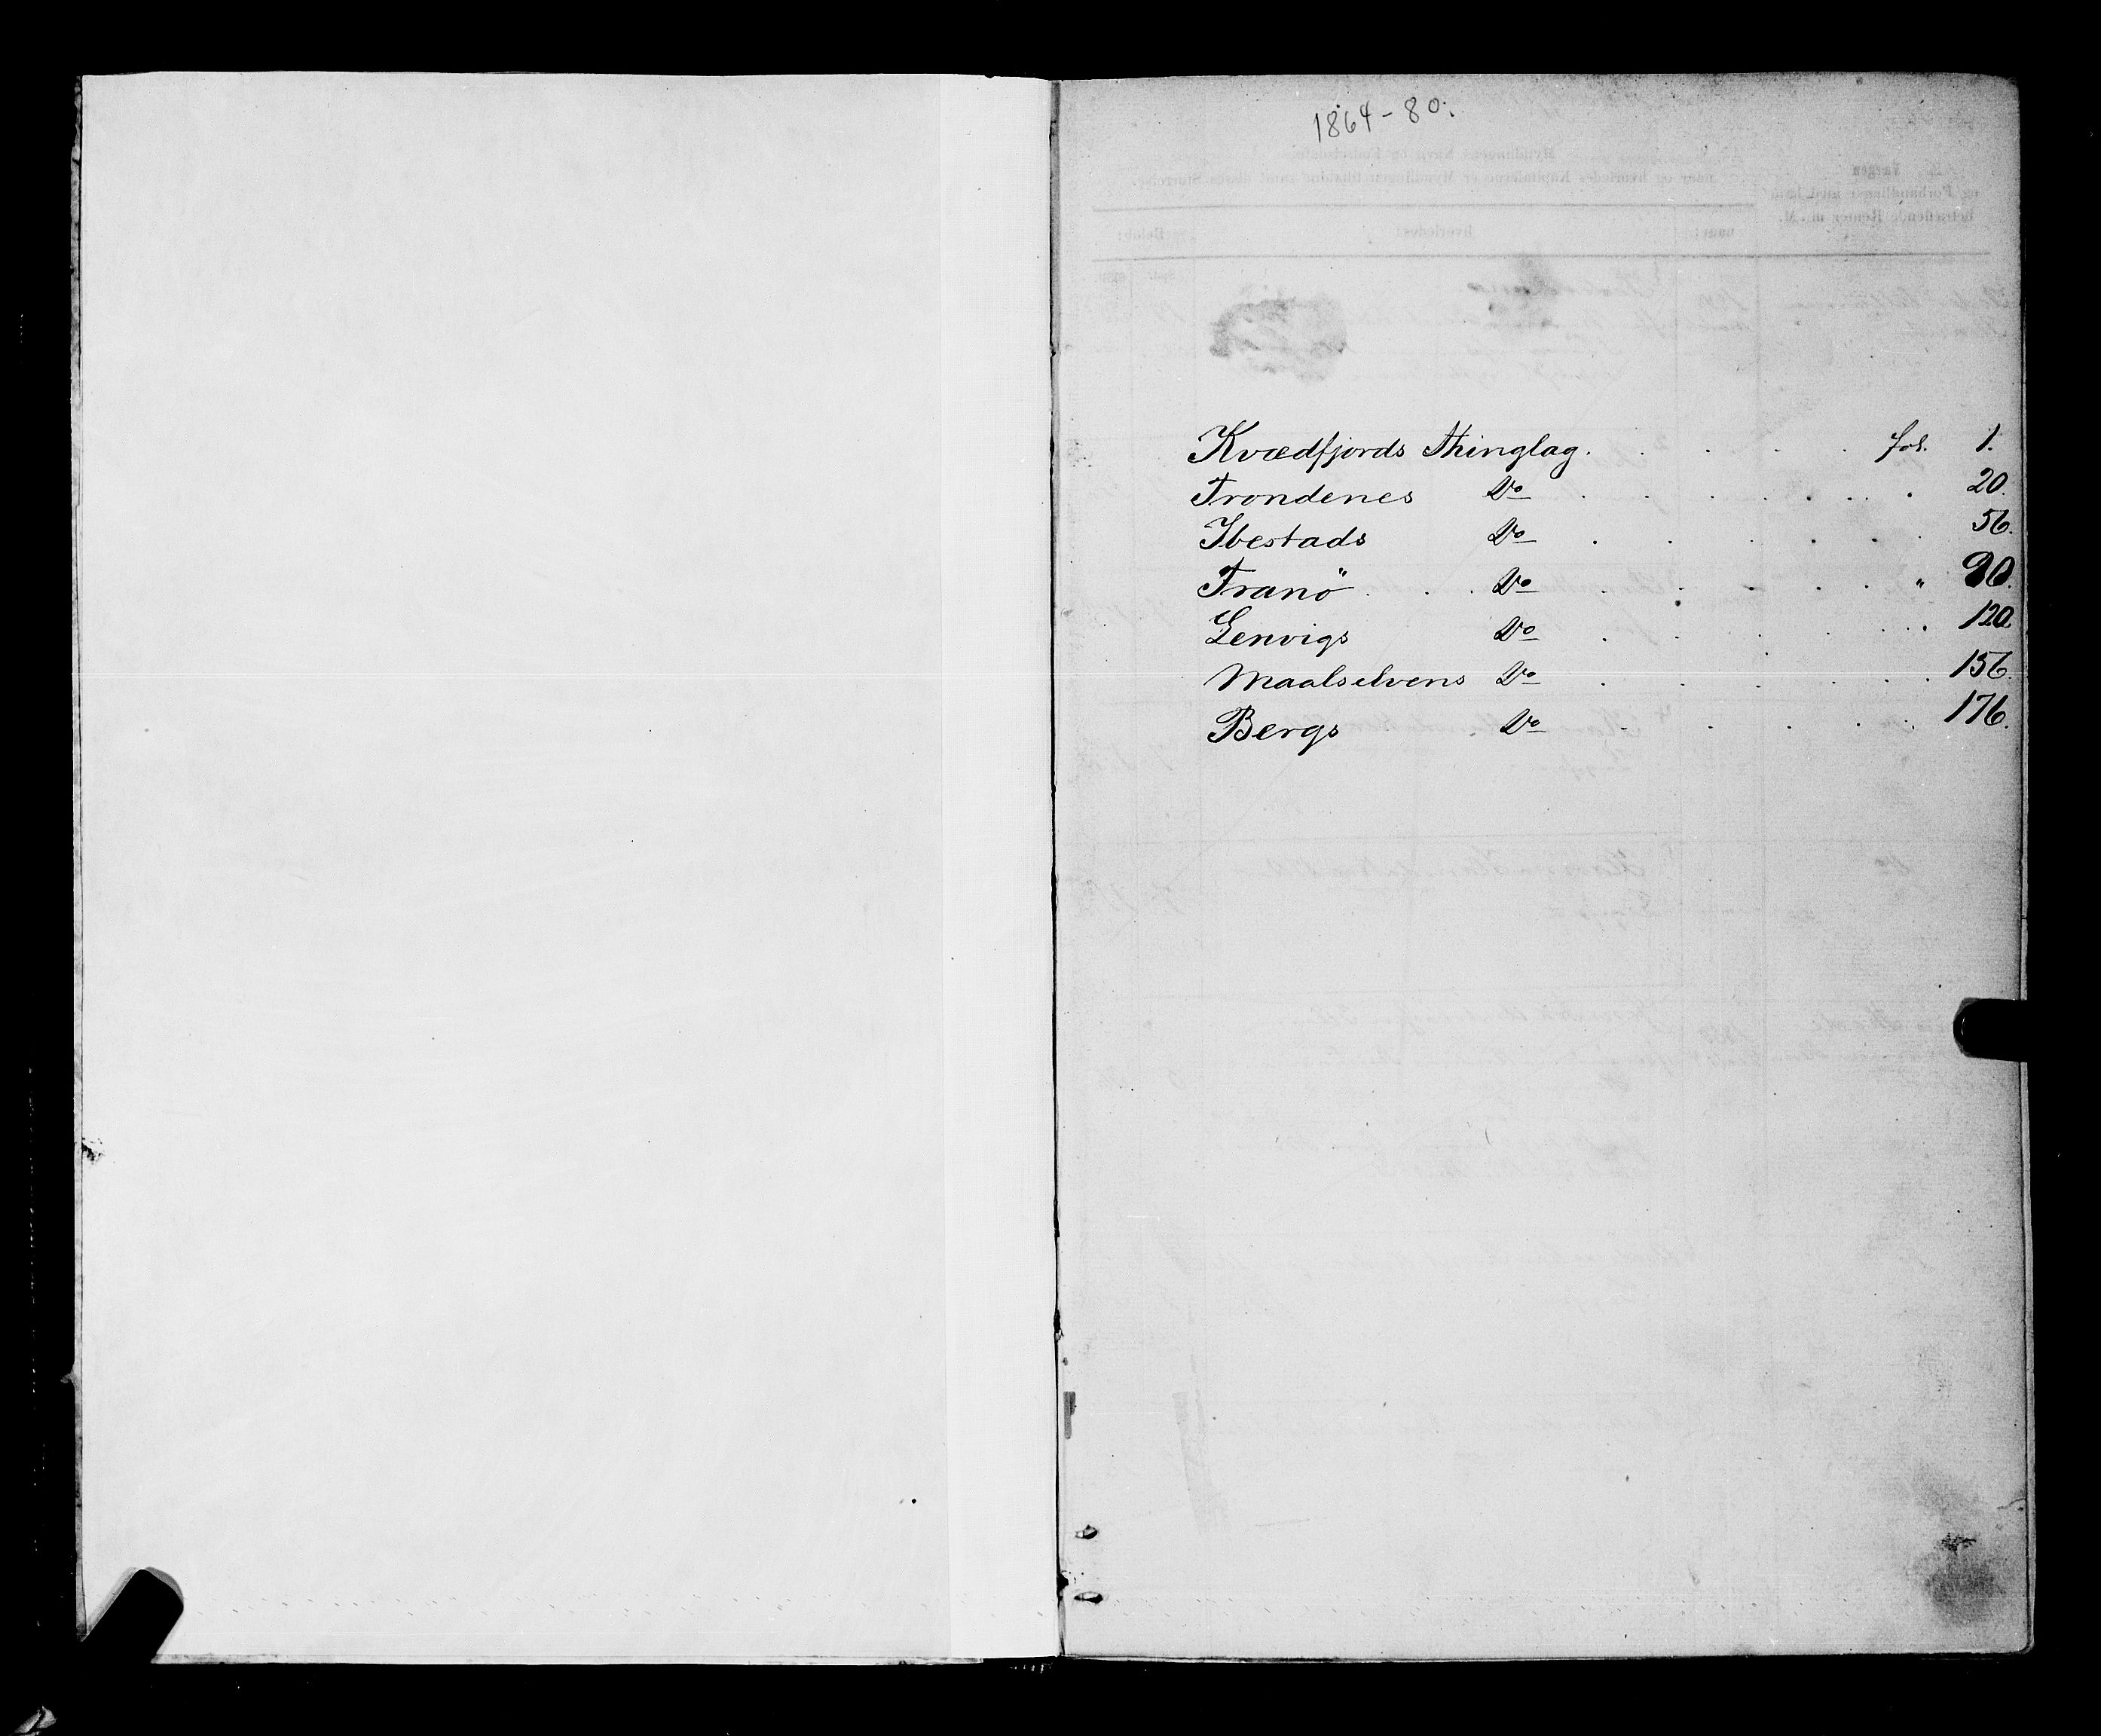 1864-80.
Kvædfjords Thinglag. . . . . fol. 1.
Trondenes Do . . . . . . . 20.
Ibestads Do . . . . . . 56.
Tranö . . . Do . . . . . " 90.
Lenvigs Do . . . . . . 120.
Maalselvens Do . . . . . . 156.
Bergs Do . . . . . 176.